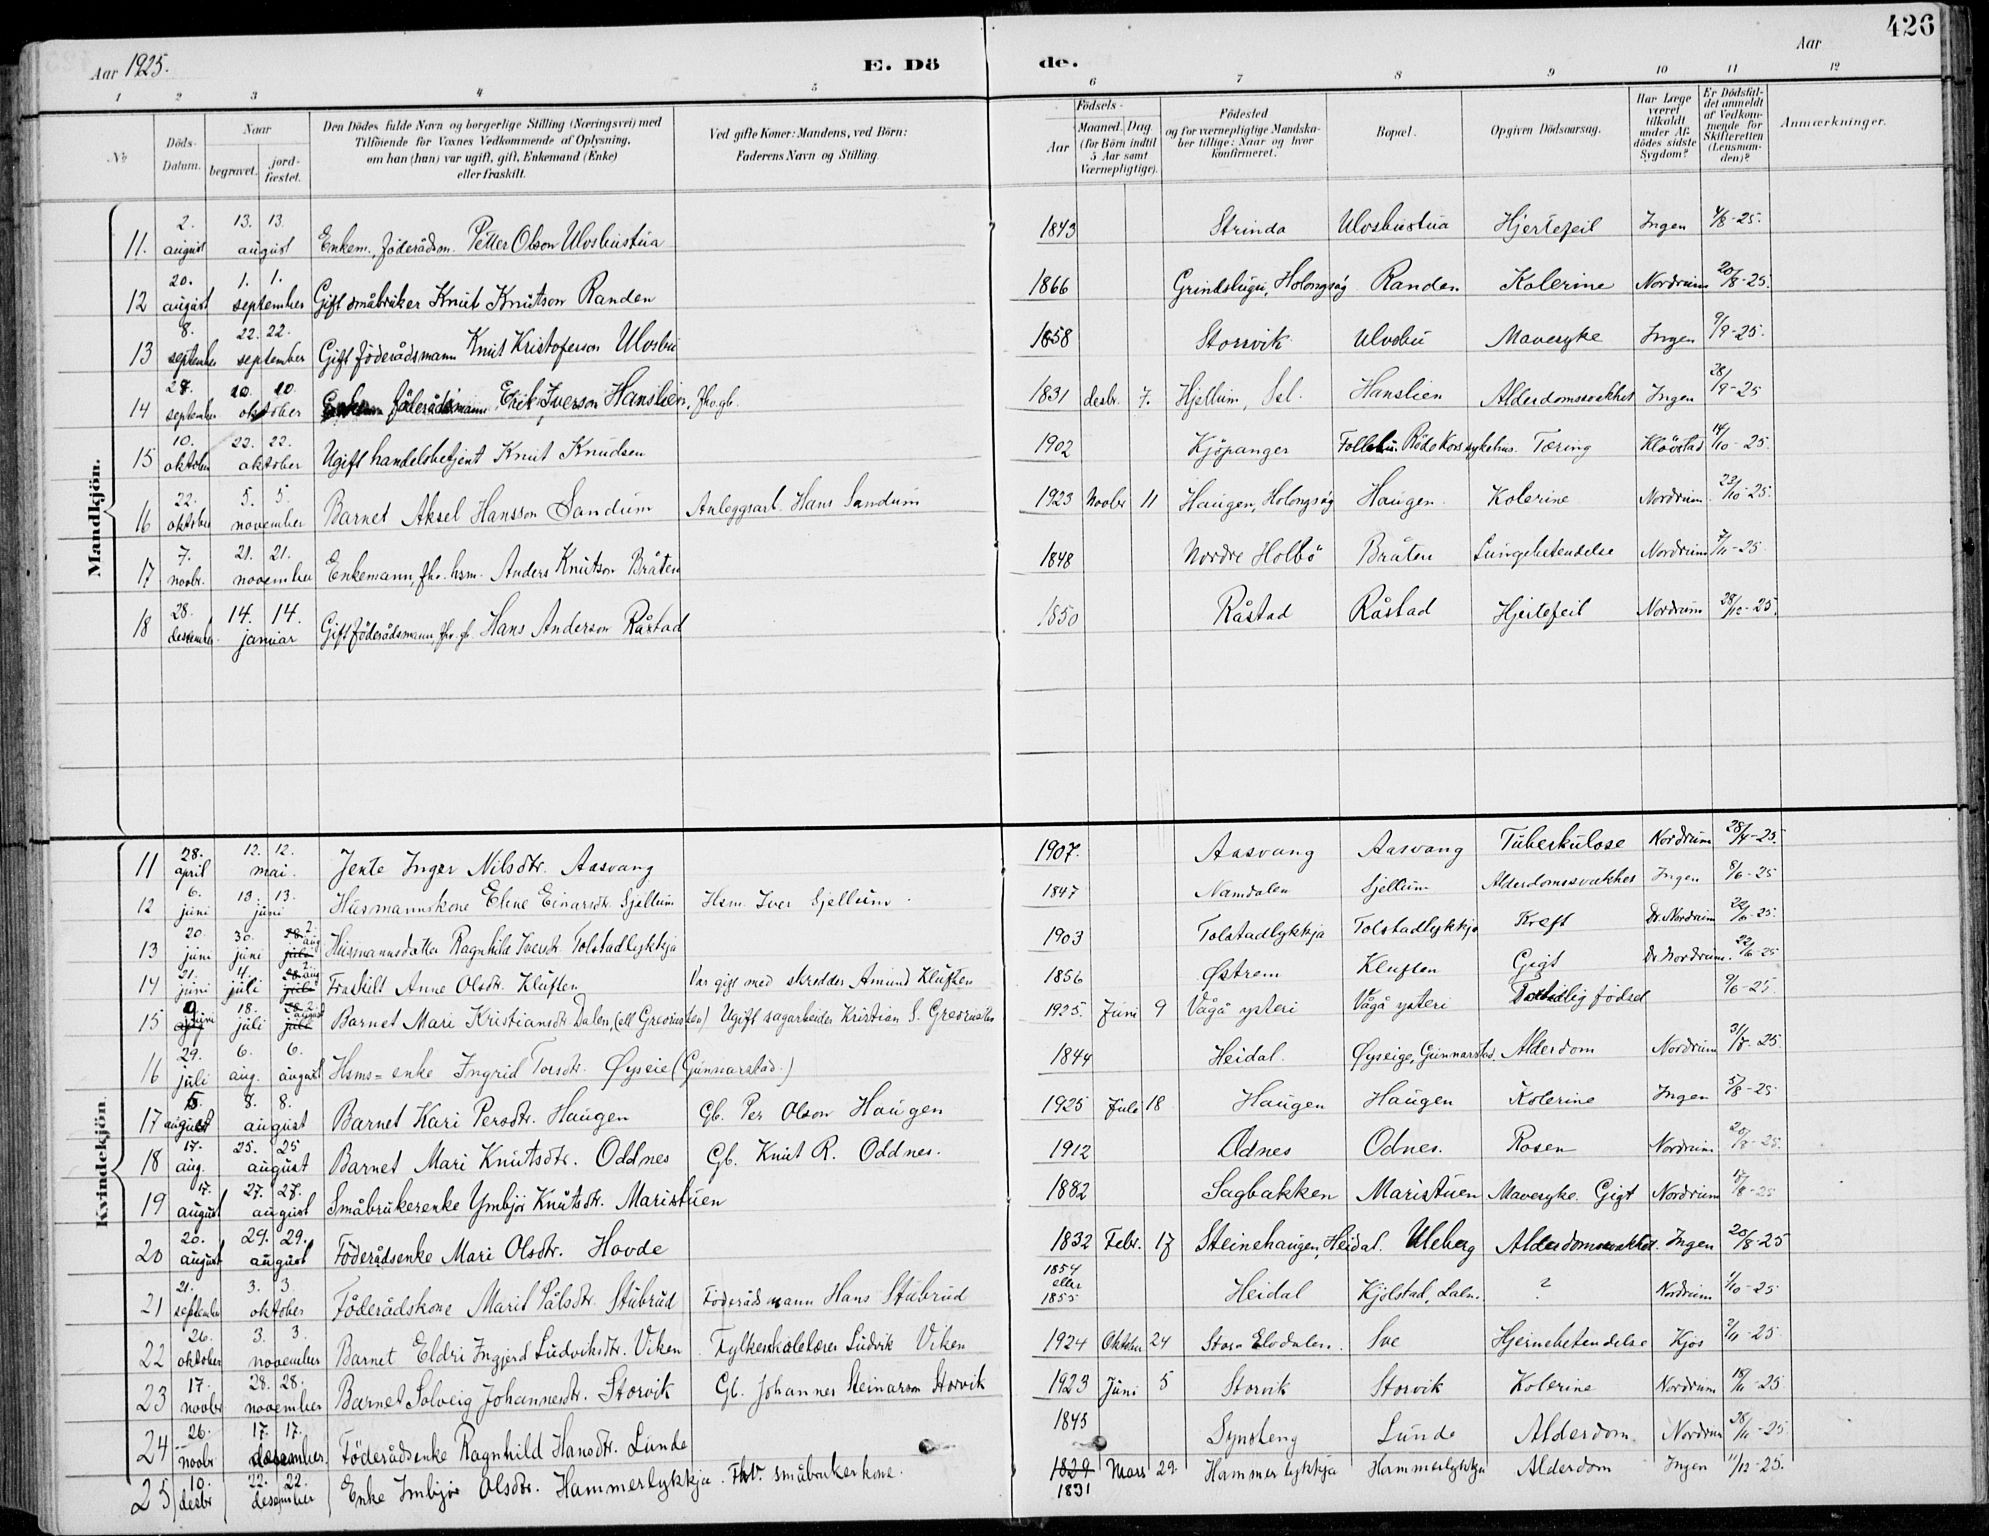 426
Aar 1925. E. Dö de. Aar
1 2 3 4 5 6 7 8 9 10 11 12
No Döds-Datum. Naar begravet. jord-fæstet. Den Dödes fulde Navn og borgerlige Stilling (Næringsvei) med Tilföiende for Voxnes Vedkommende af Oplysning, om han (hun) var ugift, gift, Enkemand (Enke) eller fraskilt. Ved gifte Koner: Mandens, ved Börn: Faderens Navn og Stilling. Födsels- Aar Maaned. Dag (for Börn indtil 5 Aar samt Værnepligtige). Födested og for værnepligtige Mandskaber tillige: Naar og hvor konfirmeret. Bopæl. Opgiven Dödsaarsag. Har Læge været tilkaldt under Afdödes sidste Sygdom? Er Dödsfaldet anmeldt af Vedkommende for Skifteretten (Lensmanden)? Anmærkninger.
Mandkjön.
11. 2. august 13. 13. august Enkem., föderådsm. Petter Olson Ulvsbustua 1843 Strinda Ulvsbustua Hjertefeil Ingen 4/8-25.
12 20. august 1. 1. september Gift småbruker Knut Knutson Randen 1866 Holongsåg Randen Kolerine Nordrum 20/8-25.
13 8. september 22. 22. september Gift föderådsmann Knut Kristoferson Ulvsbu 1858 Storvik Ulvsbu Mavesyke Ingen 9/9-25.
14 28. september 10. 10. oktober föderådsmann Erik Iverson Hanslien, fhv. gb. 1831 desbr. 7. Hjellum, Sel. Hanslien Alderdomssvakhet Ingen 28/9-25
15 10. oktober 22. 22. oktober Ugift handelsbetjent Knut Knudsen 1902 Kjöpanger Follebu. Röde Kors sykehus. Tæring Klövstad 14/10-25.
16 22. oktober 5. 5. november Barnet Aksel Hansson Sandum Anleggsarb. Hans Sandum 1923 Novbr 11 Haugen, Holongsåg Haugen. Kolerine Nordrum 23/10-25.
17 7. novbr. 21. 21. november Enkemann, fhv. hsm. Anders Knutson Bråten 1848 Nordre Holbö Bråten Lungebetendelse Nordrum 7/11-25.
18 28. desember. 14. 14. januar Gift föderådsmann, fhv. gb. Hans Anderson Råstad 1850 Råstad Råstad Hjertefeil Nordrum 28/12-25.
Kvindekjön.
11 28. april 12. 12. mai. Jente Inger Nilsdtr. Aasvang 1907. Aasvang Aasvang Tuberkulose Nordrum 28/4-25.
12 6. juni 13. 13. juni Husmannskone Eline Einarsdtr. Sjellum Hsm. Iver Sjellum. 1847 Namdalen Sjellum Alderdomssvakhet Ingen 8/6-25
13 20. juni 30. juni 28. juli 2 aug Husmannsdatter Ragnhild Iversdtr. Tolstadlykkja 1903 Tolstadlykkja Tolstadlykkja Kreft Dr. Nordrum 22/6-25.
14 21. juni 4. juli 28. juli 2 aug Fraskilt Anne Olsdtr. Kluften Var gift med skredder Amund Kluften 1856 Østrem Kluften Gigt Dr. Nordrum. 22/6-25
15 9 juni 18. juli 28. juli 2 august Barnet Mari Kristiansdtr. Dalen, Ugift sagarbeider Kristian S. 1925. Juni 9 Vågå ysteri Vågå ysteri For tidlig födsel 9/6-25.
16 29. juli 6. aug. 6. august Hsms=enke Ingrid Torsdtr. Øyseie (Gunnarstad.) 1844 Heidal. Øyseige, Gunnarstad. Alderdom Nordrum 31/7-25.
17 5. august 8. 8. august Barnet Kari Persdtr. Haugen Gb. Per Olson Haugen 1925 Juli 18 Haugen Haugen Kolerine Ingen 5/8-25
18 17. aug. 25. 25 august Barnet Mari Knutsdtr. Oddnes Gb. Knut R. Oddnes. 1912 Odnes Odnes. Rosen Nordrum 20/8-25.
19 17. august 27. 27. august Småbrukerenke Ymbjör Knutsdtr. Maristuen 1882 Sagbakken Maristuen Mavesyke. Gigt Nordrum 17/8-25
20 20. august 29. 29. august Föderådsenke Mari Olsdtr. Hovde 1832 Febr. 17 Steinehaugen, Heidal. Uleberg Alderdomssvakhet. Ingen 20/8-25
21 21. september 3. 3 oktober Föderådskone Marit Pålsdtr. Stubrud Föderådsmann Hans Stubrud 1854 eller 1855 Heidal Kjolstad, Lalm. ? Nordrum 1/10-25
22 26. oktober 3. 3. november Barnet Eldri Ingjerd Ludviksdtr. Viken Fylkesskolelærer Ludvik Viken 1924 Oktober 24 Stor Elvdalen. Sve Hjernebetendelse Kjos 2/11-25
23 17. novbr. 28. 28. november Barnet Solveig Johannesdtr. Storvik Gb. Johannes Steinarson Storvik 1923 Juni 5 Storvik Storvik Kolerine Nordrum 18/11-25
24 26. novbr 17. 17. desember. Föderådsenke Ragnhild Hansdtr. Lunde 1843 Synsteng Lunde Alderdom Nordrum 28/11-25.
25 10. desbr 22. 22. desember Enke Imbjör Olsdtr. Hammerlykkja. Fhv. småbrukerkone. 1829 1831 Mars 29. Hammerlykkja Hammerlykkja Alderdom Ingen 11/12-25.